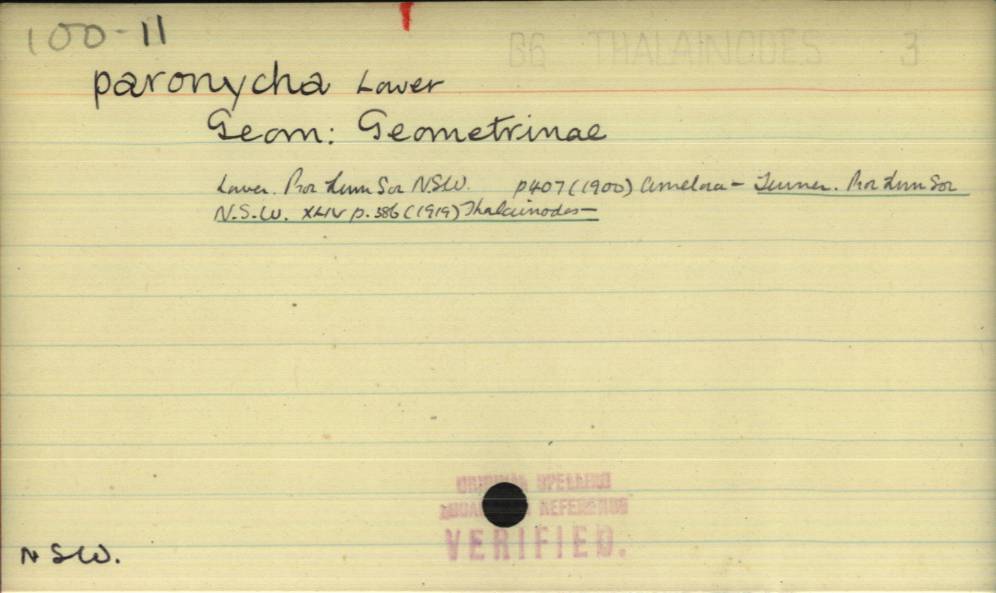 100-11
66 THALAINODES 3
paronycha Lower
Geom: Geometrinae
Lower. Proc Linn Soc NSW. p407 (1900) Amelora - Turner. Proc Linn Soc
N.S.W. XLIV p. 386 (1919) Thalainodes -
ORIGINAL SPELLING
AND REFERENCE
VERIFIED.
NSW.